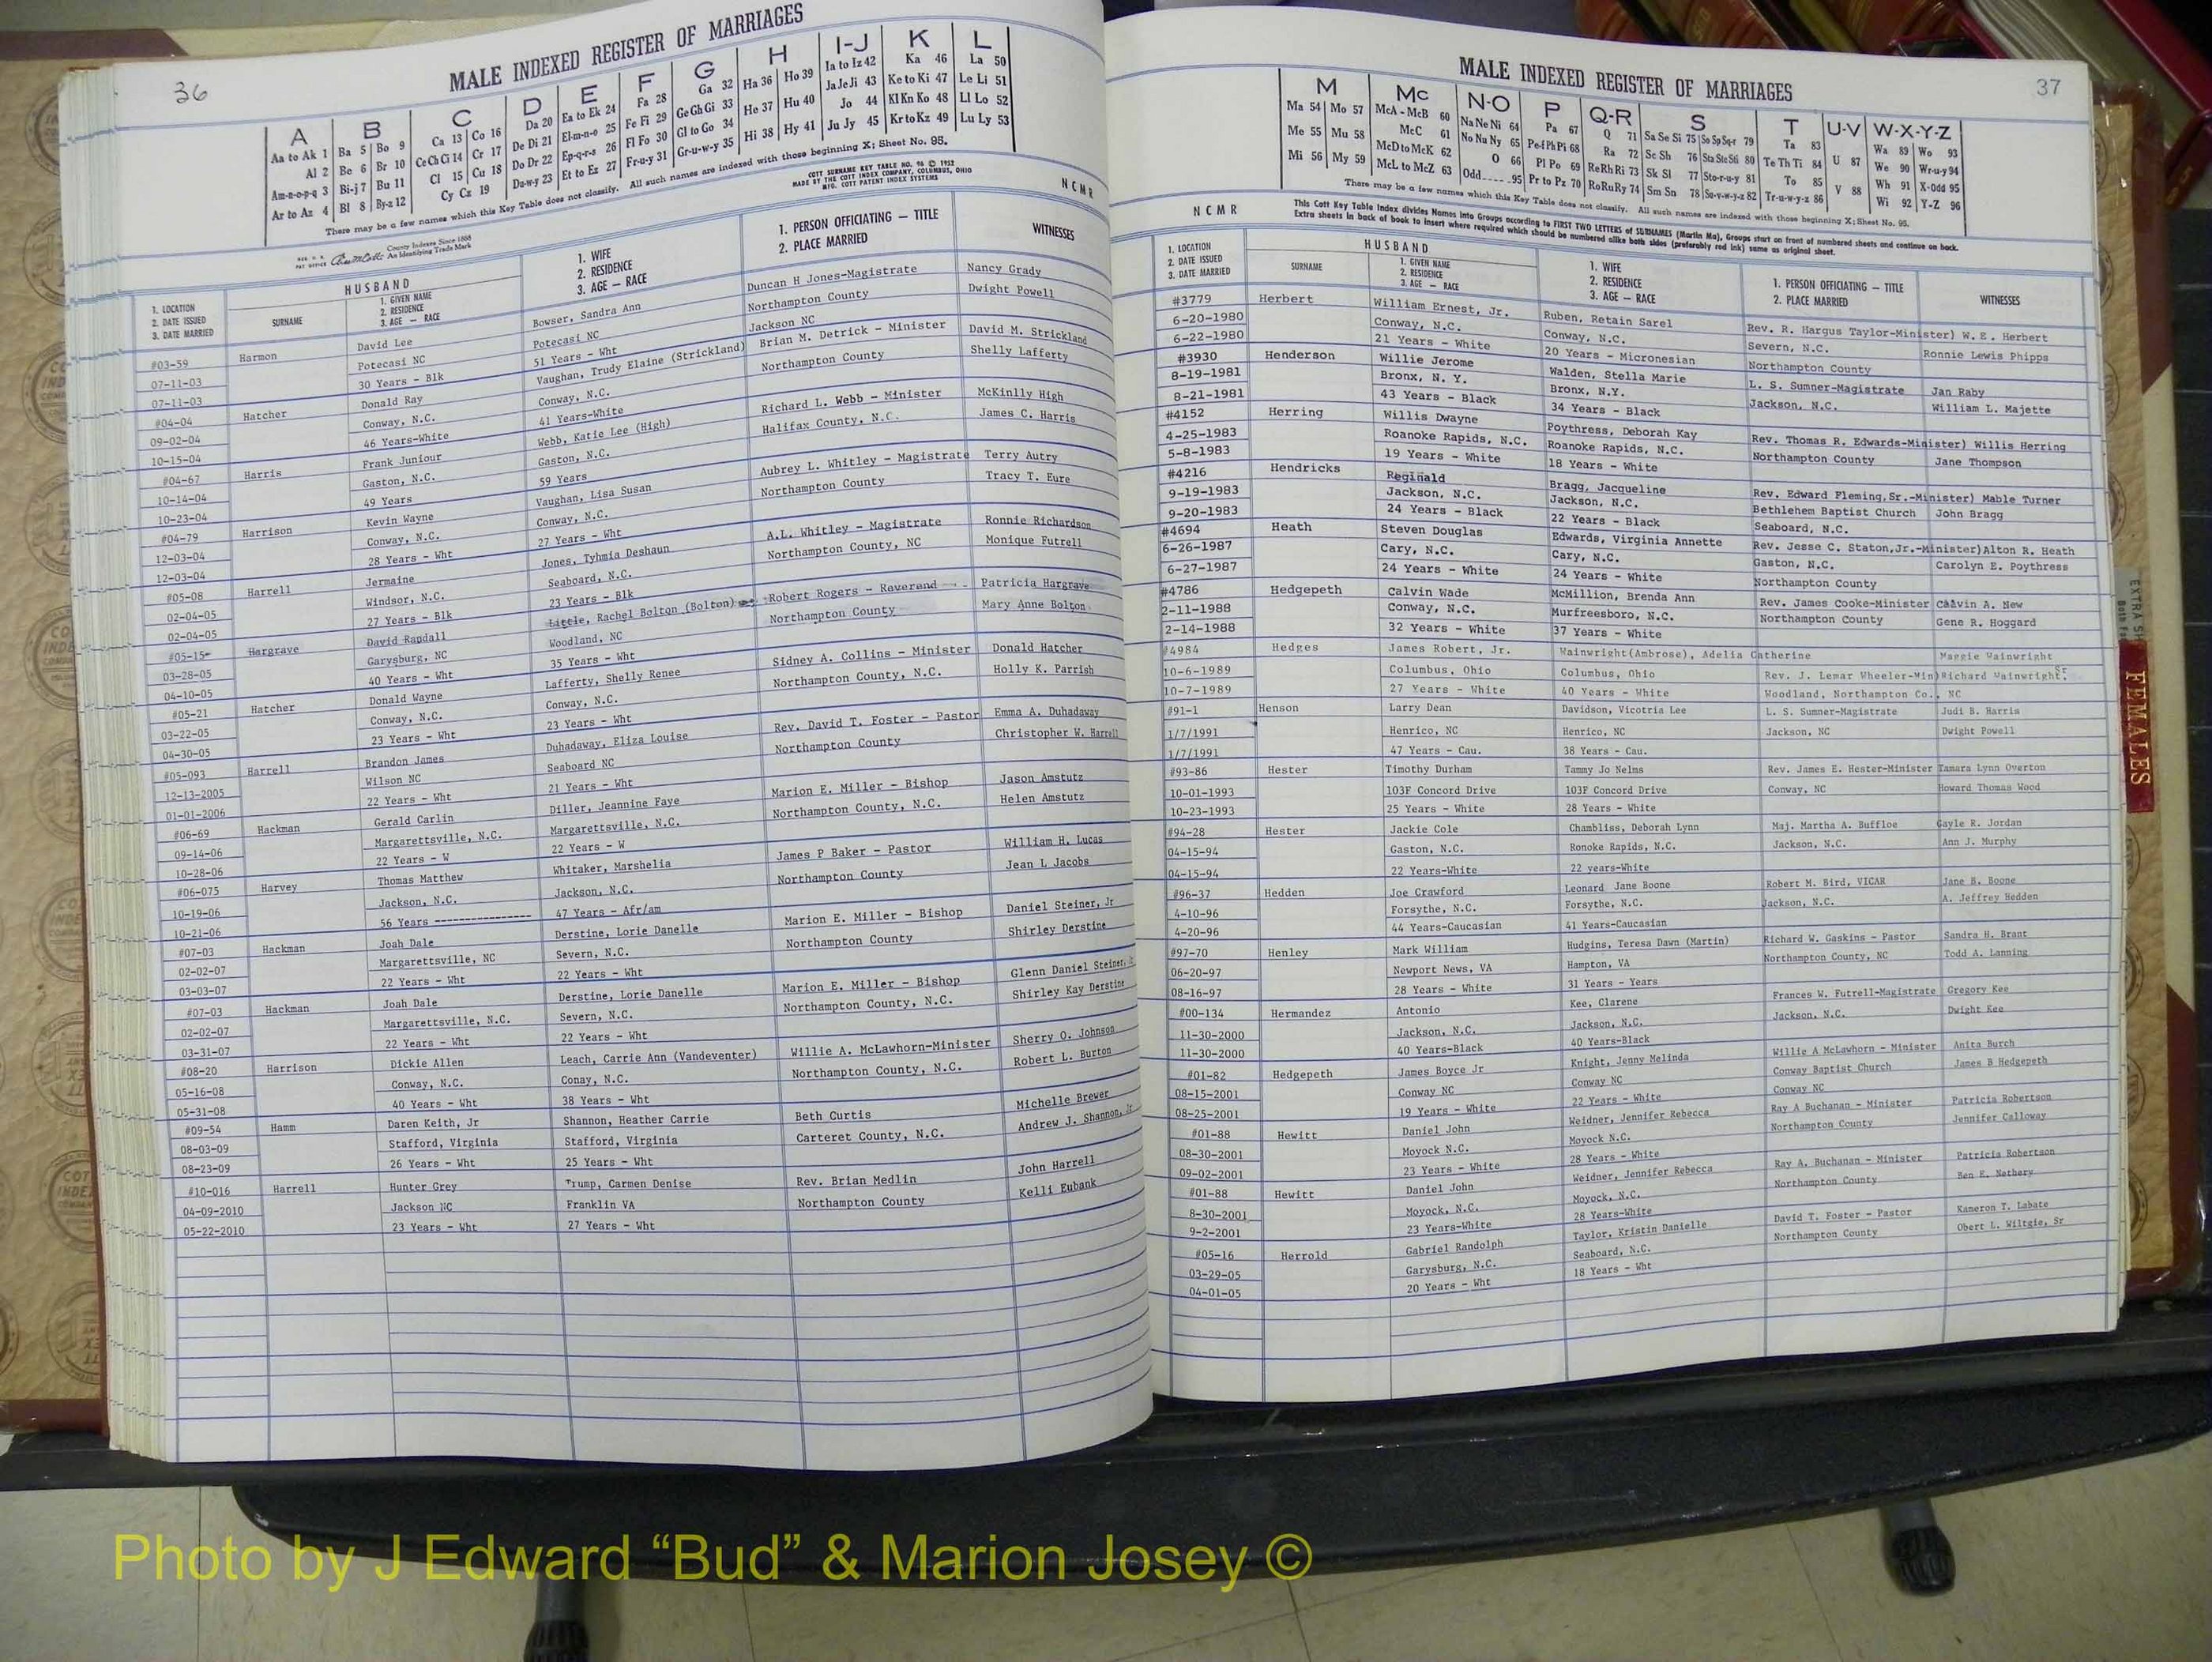 36
MALE INDEXED REGISTER OF MARRIAGES
A B C D E F G H I-J K L
Aa to Ak 1 Ba 5 Bo 9 Ca 13 Co 16 Da 20 Ea to Ek 24 Fa 28 Ga 32 Ha 36 Ho 39 Ia to Iz 42 Ka 46 La 50
Al 2 Be 6 Br 10 Ce Ch Ci 14 Cr 17 De Di 21 El-m-n-o 25 Fe Fi 29 Ge Gh Gi 33 He 37 Hu 40 Ja Je Ji 43 Ke to Ki 47 Le Li 51
Am-n-o-p-q 3 Bi-j 7 Bu 11 Cl 15 Cu 18 Do Dr 22 Ep-q-r-s 26 Fl Fo 30 Gl to Go 34 Hi 38 Hy 41 Jo 44 Kl Kn Ko 48 Ll Lo 52
Ar to Az 4 Bl 8 By-z 12 Cy Cz 19 Du-w-y 23 Et to Ez 27 Fr-u-y 31 Gr-u-w-y 35 Ju Jy 45 Kr to Kz 49 Lu Ly 53
There may be a few names which this Key Table does not classify. All such names are indexed with those beginning X; Sheet No. 95.
County Indexes Since 1888
An Identifying Trade Mark
COTT SURNAME KEY TABLE NO. 96 © 1952
MADE BY THE COTT INDEX COMPANY, COLUMBUS, OHIO
MFG. COTT PATENT INDEX SYSTEMS
N C M R
1. LOCATION
2. DATE ISSUED
3. DATE MARRIED
HUSBAND
SURNAME
1. GIVEN NAME
2. RESIDENCE
3. AGE — RACE
1. WIFE
2. RESIDENCE
3. AGE — RACE
1. PERSON OFFICIATING — TITLE
2. PLACE MARRIED
WITNESSES
#03-59 Harmon David Lee Bowser, Sandra Ann Duncan H Jones-Magistrate Nancy Grady
07-11-03 Potecasi NC Potecasi NC Northampton County Dwight Powell
07-11-03 30 Years - Blk 51 Years - Wht Jackson NC
#04-04 Hatcher Donald Ray Vaughan, Trudy Elaine (Strickland) Brian M. Detrick - Minister David M. Strickland
09-02-04 Conway, N.C. Conway, N.C. Northampton County Shelly Lafferty
10-15-04 46 Years-White 41 Years-White
#04-67 Harris Frank Juniour Webb, Katie Lee (High) Richard L. Webb - Minister McKinlly High
10-14-04 Gaston, N.C. Gaston, N.C. Halifax County, N.C. James C. Harris
10-23-04 49 Years 59 Years
#04-79 Harrison Kevin Wayne Vaughan, Lisa Susan Aubrey L. Whitley - Magistrate Terry Autry
12-03-04 Conway, N.C. Conway, N.C. Northampton County Tracy T. Eure
12-03-04 28 Years - Wht 27 Years - Wht
#05-08 Harrell Jermaine Jones, Tyhmia Deshaun A.L. Whitley - Magistrate Ronnie Richardson
02-04-05 Windsor, N.C. Seaboard, N.C. Northampton County, NC Monique Futrell
02-04-05 27 Years - Blk 23 Years - Blk
#05-15 Hargrave David Randall Little, Rachel Bolton (Bolton) Robert Rogers - Reverend Patricia Hargrave
03-28-05 Garysburg, NC Woodland, NC Northampton County Mary Anne Bolton
04-10-05 40 Years - Wht 35 Years - Wht
#05-21 Hatcher Donald Wayne Lafferty, Shelly Renee Sidney A. Collins - Minister Donald Hatcher
03-22-05 Conway, N.C. Conway, N.C. Northampton County, N.C. Holly K. Parrish
04-30-05 23 Years - Wht 23 Years - Wht
#05-093 Harrell Brandon James Duhadaway, Eliza Louise Rev. David T. Foster - Pastor Emma A. Duhadaway
12-13-2005 Wilson NC Seaboard NC Northampton County Christopher W. Harrell
01-01-2006 22 Years - Wht 21 Years - Wht
#06-69 Hackman Gerald Carlin Diller, Jeannine Faye Marion E. Miller - Bishop Jason Amstutz
09-14-06 Margarettsville, N.C. Margarettsville, N.C. Northampton County, N.C. Helen Amstutz
10-28-06 22 Years - W 22 Years - W
#06-075 Harvey Thomas Matthew Whitaker, Marshelia James P Baker - Pastor William H. Lucas
10-19-06 Jackson, N.C. Jackson, N.C. Northampton County Jean L Jacobs
10-21-06 56 Years ---------------- 47 Years - Afr/am
#07-03 Hackman Joah Dale Derstine, Lorie Danelle Marion E. Miller - Bishop Daniel Steiner, Jr
02-02-07 Margarettsville, NC Severn, N.C. Northampton County Shirley Derstine
03-03-07 22 Years - Wht 22 Years - Wht
#07-03 Hackman Joah Dale Derstine, Lorie Danelle Marion E. Miller - Bishop Glenn Daniel Steiner,
02-02-07 Margarettsville, N.C. Severn, N.C. Northampton County, N.C. Shirley Kay Derstine
03-31-07 22 Years - Wht 22 Years - Wht
#08-20 Harrison Dickie Allen Leach, Carrie Ann (Vandeventer) Willie A. McLawhorn-Minister Sherry O. Johnson
05-16-08 Conway, N.C. Conay, N.C. Northampton County, N.C. Robert L. Burton
05-31-08 40 Years - Wht 38 Years - Wht
#09-54 Hamm Daren Keith, Jr Shannon, Heather Carrie Beth Curtis Michelle Brewer
08-03-09 Stafford, Virginia Stafford, Virginia Carteret County, N.C. Andrew J. Shannon, Jr
08-23-09 26 Years - Wht 25 Years - Wht
#10-016 Harrell Hunter Grey Trump, Carmen Denise Rev. Brian Medlin John Harrell
04-09-2010 Jackson NC Franklin VA Northampton County Kelli Eubank
05-22-2010 23 Years - Wht 27 Years - Wht
37
MALE INDEXED REGISTER OF MARRIAGES
M Mc N-O P Q-R S T U-V W-X-Y-Z
Ma 54 Mo 57 McA - McB 60 Na Ne Ni 64 Pa 67 Q 71 Sa Se Si 75 So Sp Sq-r 79 Ta 83 U 87 Wa 89 Wo 93
Me 55 Mu 58 McC 61 No Nu Ny 65 Pe-f Ph Pi 68 Ra 72 Sc Sh 76 Sta Ste Sti 80 Te Th Ti 84 V 88 We 90 Wr-u-y 94
Mi 56 My 59 McD to McK 62 O 66 Pl Po 69 Re Rh Ri 73 Sk Sl 77 Sto-r-u-y 81 To 85 Wh 91 X-Odd 95
McL to McZ 63 Odd 95 Pr to Pz 70 Ro Ru Ry 74 Sm Sn 78 Su-v-w-y-z 82 Tr-u-w-y-z 86 Wi 92 Y-Z 96
There may be a few names which this Key Table does not classify. All such names are indexed with those beginning X; Sheet No. 95.
N C M R
This Cott Key Table Index divides Names into Groups according to FIRST TWO LETTERS of SURNAMES (Martin Ma), Groups start on front of numbered sheets and continue on back.
Extra sheets in back of book to insert where required which should be numbered alike both sides (preferably red ink) same as original sheet.
1. LOCATION
2. DATE ISSUED
3. DATE MARRIED
HUSBAND
SURNAME
1. GIVEN NAME
2. RESIDENCE
3. AGE — RACE
1. WIFE
2. RESIDENCE
3. AGE — RACE
1. PERSON OFFICIATING — TITLE
2. PLACE MARRIED
WITNESSES
#3779 Herbert William Ernest, Jr. Ruben, Retain Sarel Rev. R. Hargus Taylor-Minister) W. E. Herbert
6-20-1980 Conway, N.C. Conway, N.C. Severn, N.C. Ronnie Lewis Phipps
6-22-1980 21 Years - White 20 Years - Micronesian Northampton County
#3930 Henderson Willie Jerome Walden, Stella Marie L. S. Sumner-Magistrate Jan Raby
8-19-1981 Bronx, N. Y. Bronx, N.Y. Jackson, N.C. William L. Majette
8-21-1981 43 Years - Black 34 Years - Black
#4152 Herring Willis Dwayne Poythress, Deborah Kay Rev. Thomas R. Edwards-Minister) Willis Herring
4-25-1983 Roanoke Rapids, N.C. Roanoke Rapids, N.C. Northampton County Jane Thompson
5-8-1983 19 Years - White 18 Years - White
#4216 Hendricks Reginald Bragg, Jacqueline Rev. Edward Fleming,Sr.-Minister) Mable Turner
9-19-1983 Jackson, N.C. Jackson, N.C. Bethlehem Baptist Church John Bragg
9-20-1983 24 Years - Black 22 Years - Black Seaboard, N.C.
#4694 Heath Steven Douglas Edwards, Virginia Annette Rev. Jesse C. Staton,Jr.-Minister)Alton R. Heath
6-26-1987 Cary, N.C. Cary, N.C. Gaston, N.C. Carolyn E. Poythress
6-27-1987 24 Years - White 24 Years - White Northampton County
#4786 Hedgepeth Calvin Wade McMillion, Brenda Ann Rev. James Cooke-Minister Calvin A. New
2-11-1988 Conway, N.C. Murfreesboro, N.C. Northampton County Gene R. Hoggard
2-14-1988 32 Years - White 37 Years - White
#4984 Hedges James Robert, Jr. Wainwright(Ambrose), Adelia Catherine Maggie Wainwright
10-6-1989 Columbus, Ohio Columbus, Ohio Rev. J. Lemar Wheeler-Min)Richard Wainwright, Sr.
10-7-1989 27 Years - White 40 Years - White Woodland, Northampton Co., NC
#91-1 Henson Larry Dean Davidson, Vicotria Lee L. S. Sumner-Magistrate Judi B. Harris
1/7/1991 Henrico, NC Henrico, NC Jackson, NC Dwight Powell
1/7/1991 47 Years - Cau. 38 Years - Cau.
#93-86 Hester Timothy Durham Tammy Jo Nelms Rev. James E. Hester-Minister Tamara Lynn Overton
10-01-1993 103F Concord Drive 103F Concord Drive Conway, NC Howard Thomas Wood
10-23-1993 25 Years - White 28 Years - White
#94-28 Hester Jackie Cole Chambliss, Deborah Lynn Maj. Martha A. Buffloe Gayle R. Jordan
04-15-94 Gaston, N.C. Ronoke Rapids, N.C. Jackson, N.C. Ann J. Murphy
04-15-94 22 Years-White 22 years-White
#96-37 Hedden Joe Crawford Leonard Jane Boone Robert M. Bird, VICAR Jane B. Boone
4-10-96 Forsythe, N.C. Forsythe, N.C. Jackson, N.C. A. Jeffrey Hedden
4-20-96 44 Years-Caucasian 41 Years-Caucasian
#97-70 Henley Mark William Hudgins, Teresa Dawn (Martin) Richard W. Gaskins - Pastor Sandra H. Brant
06-20-97 Newport News, VA Hampton, VA Northampton County, NC Todd A. Lanning
08-16-97 28 Years - White 31 Years - Years
#00-134 Hermandez Antonio Kee, Clarene Frances W. Futrell-Magistrate Gregory Kee
11-30-2000 Jackson, N.C. Jackson, N.C. Jackson, N.C. Dwight Kee
11-30-2000 40 Years-Black 40 Years-Black
#01-82 Hedgepeth James Boyce Jr Knight, Jenny Melinda Willie A McLawhorn - Minister Anita Burch
08-15-2001 Conway NC Conway NC Conway Baptist Church James B Hedgepeth
08-25-2001 19 Years - White 22 Years - White Conway NC
#01-88 Hewitt Daniel John Weidner, Jennifer Rebecca Ray A Buchanan - Minister Patricia Robertson
08-30-2001 Moyock N.C. Moyock N.C. Northampton County Jennifer Calloway
09-02-2001 23 Years - White 28 Years - White
#01-88 Hewitt Daniel John Weidner, Jennifer Rebecca Ray A. Buchanan - Minister Patricia Robertson
8-30-2001 Moyock, N.C. Moyock, N.C. Northampton County Ben E. Nethery
9-2-2001 23 Years-White 28 Years-White
#05-16 Herrold Gabriel Randolph Taylor, Kristin Danielle David T. Foster - Pastor Kameron T. Labate
03-29-05 Garysburg, N.C. Seaboard, N.C. Northampton County Obert L. Wiltgie, Sr
04-01-05 20 Years - Wht 18 Years - Wht
FEMALES
Photo by J Edward “Bud” & Marion Josey ©